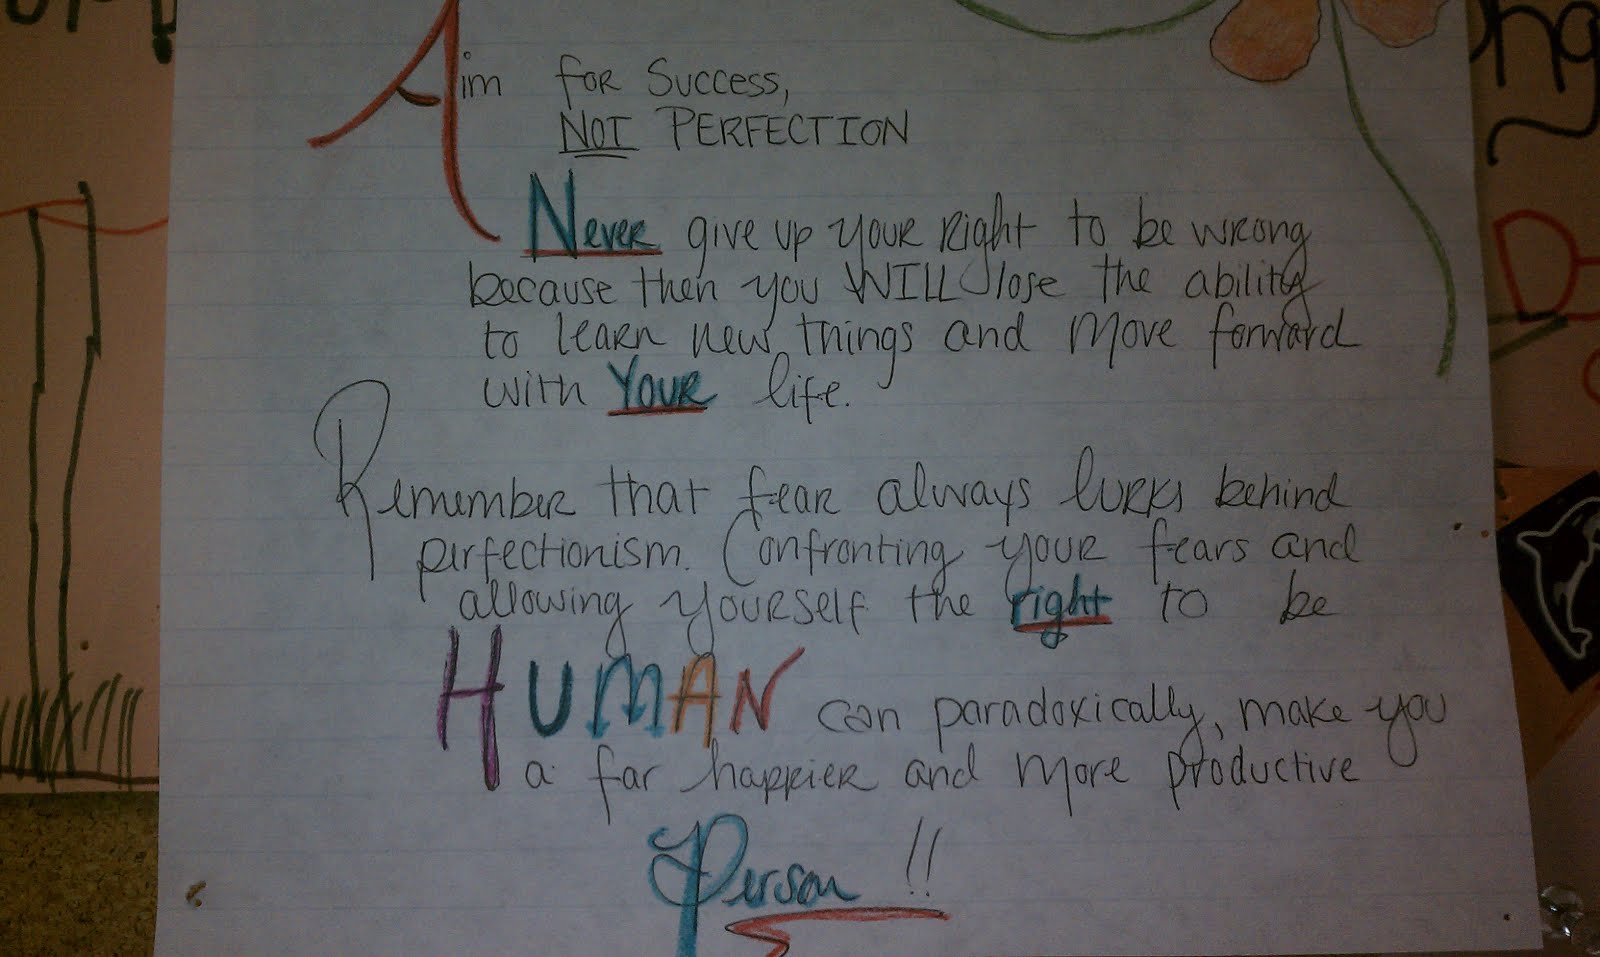 Aim for Success,
NOT PERFECTION
Never give up your right to be wrong
because then you WILL lose the ability
to learn new things and move forward
with YOUR life.
Remember that fear always lurks behind
perfectionism. Confronting your fears and
allowing yourself the right to be
HUMAN can paradoxically, make you
a far happier and more productive
Person !!